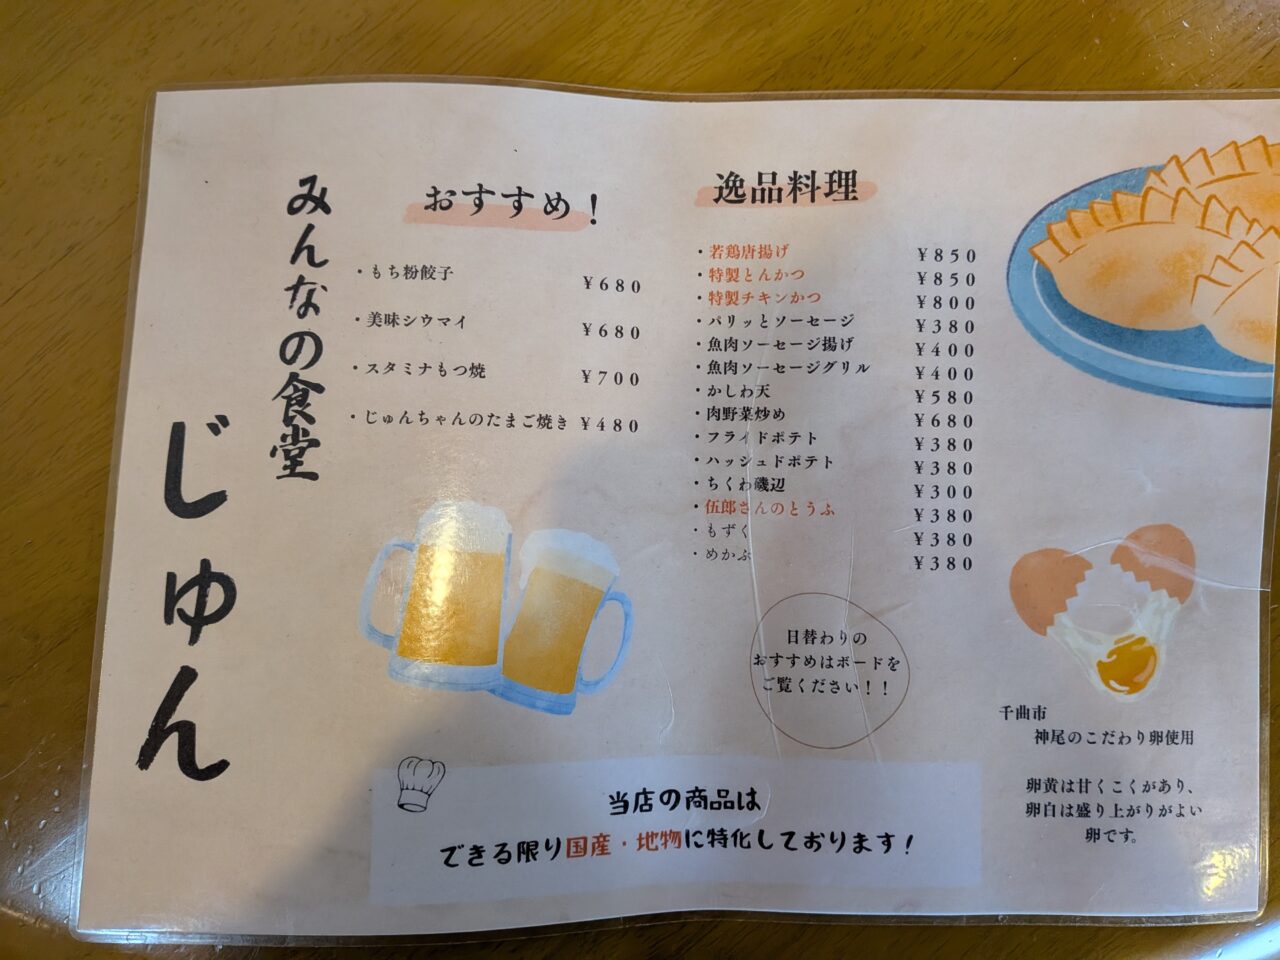 みんなの食堂
じゅん
おすすめ！
・もち粉餃子 ¥680
・美味シウマイ ¥680
・スタミナもつ焼 ¥700
・じゅんちゃんのたまご焼き ¥480
逸品料理
・若鶏唐揚げ ¥850
・特製とんかつ ¥850
・特製チキンかつ ¥800
・パリッとソーセージ ¥380
・魚肉ソーセージ揚げ ¥400
・魚肉ソーセージグリル ¥400
・かしわ天 ¥580
・肉野菜炒め ¥680
・フライドポテト ¥380
・ハッシュドポテト ¥380
・ちくわ磯辺 ¥300
・伍郎さんのとうふ ¥380
・もずく ¥380
・めかぶ ¥380
日替わりの
おすすめはボードを
ご覧ください！！
千曲市
神尾のこだわり卵使用
卵黄は甘くこくがあり、
卵白は盛り上がりがよい
卵です。
当店の商品は
できる限り国産・地物に特化しております！